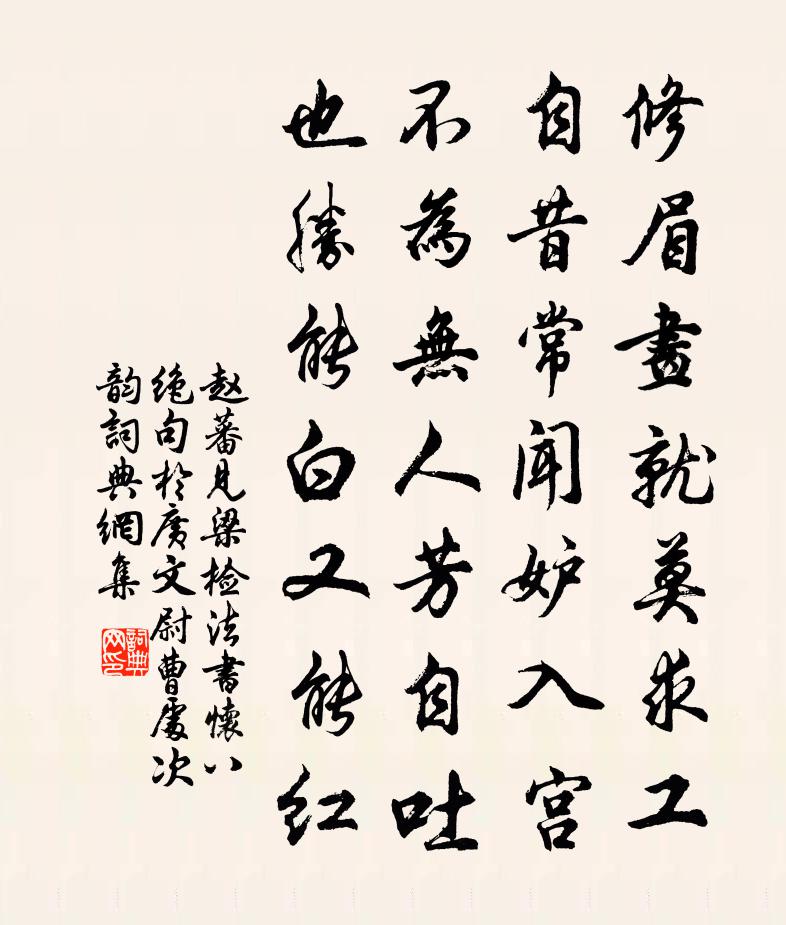 修眉畫就莫求工
自昔常聞妒入宮
不為無人芳自吐
也勝能白又能红
赵蕃見梁检法書懷八
绝句於广文尉曹處次
韵詞典網集
詞典网印